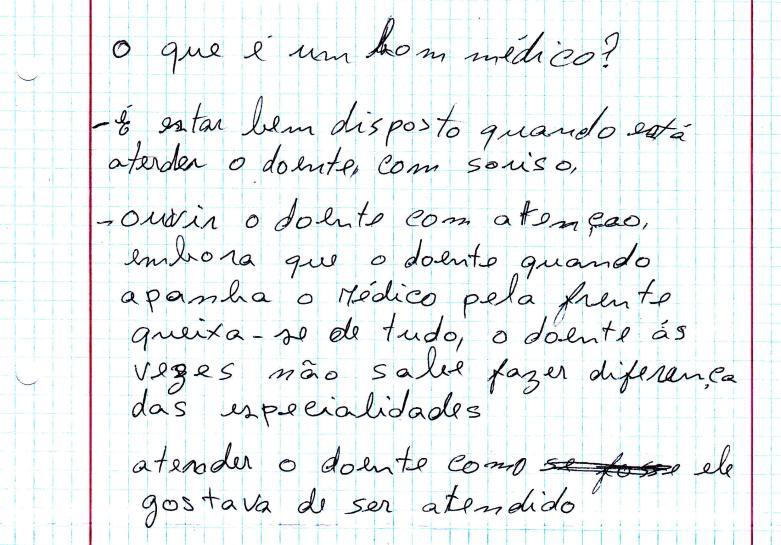 O que é um bom médico?
- É estar bem disposto quando está
atender o doente, com soriso,
- ouvir o doente com atençao,
embora que o doente quando
apanha o Médico pela frente
queixa-se de tudo, o doente ás
vezes não sabe fazer diferença
das especialidades
atender o doente como se fosse ele
gostava de ser atendido